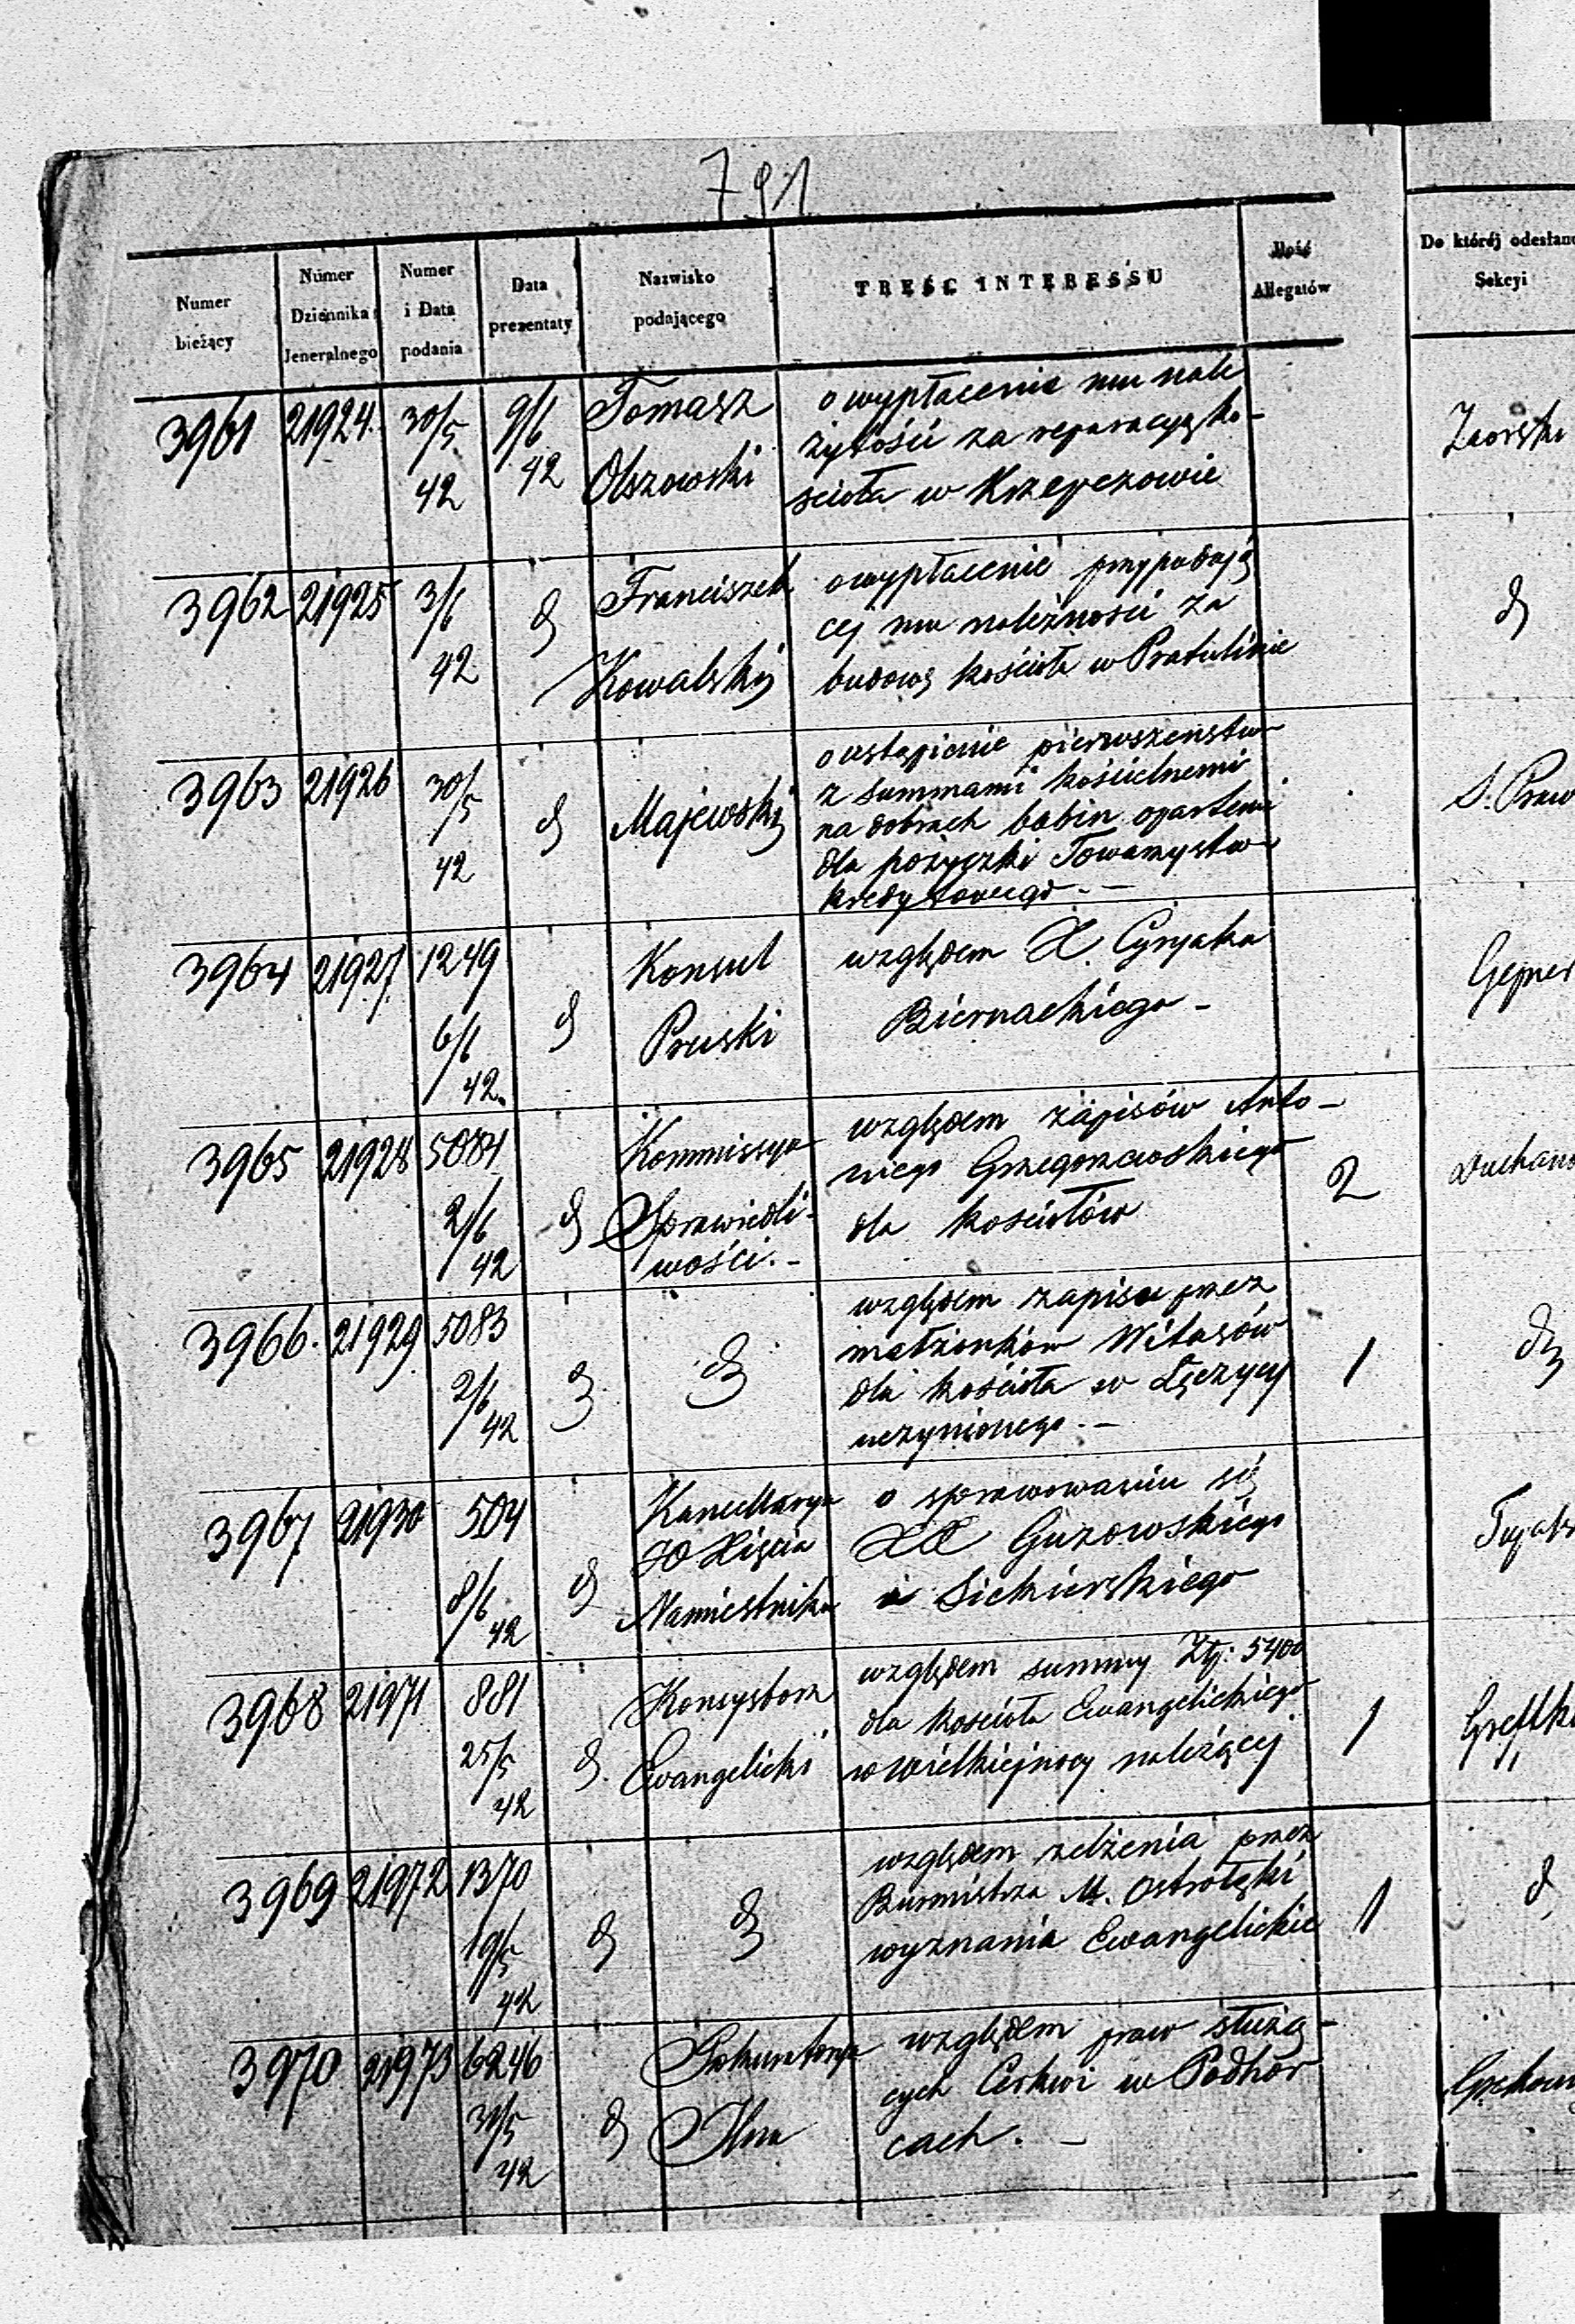 791
Numer bieżący | Numer Dziennika Jeneralnego | Numer i Data podania | Data prezentaty | Nazwisko podającego | TREŚĆ INTERESSU | Ilość Allegatów | Do której odesłano Sekcyi
3961 | 21924 | 30/5 42 | 9/6 42 | Tomasz Olszowski | o wypłacenie mu nale
żytości za reparacyą ko-
scioła w Krzepczowie
3962 | 21925 | 3/6 42 | d | Franciszek Kowalski | o wypłacenie przypadają
cej mu należnosci za
budowę kościoła w Pratulinie | d
3963 | 21926 | 30/5 42 | d | Majewski | o ustąpienie pierwszenstwa
z summami kościelnemi
na dobrach babin opartemi
dla pożyczki Towarzystwa
kredytowego. - | S. Praw
3964 | 21927 | 1249 6/6 42. | d | Konsul Pruski | względem X. Cyryaka
Biernackiego -
3965 | 21928 | 5084 2/6 42 | d | Kommissya Sprawiedli- wości. - | względem zapisów Anto-
niego Grzegorzewskiego
dla kosciołów | 2
3966. | 21929 | 5083 2/6 42 | d | d | względem zapisu przez
małżonków Witasów
dla kościoła w Łęczycy
uczynionego. - | 1 | d
3967 | 21930 | 504 8/6 42 | d | Kancellarya JO Xięcia Namiestnika | o sprawowaniu się
XX Guzowskiego
i Siekierskiego
3968 | 21971 | 881 25/5 42 | d. | Konsystorz Ewangelicki | względem summy Złp: 5400
dla koscioła Ewangelickiego
w Wielkiejnocy należącej | 1
3969 | 21972 | 1370 19/5 42 | d | d | względem zelżenia przez
Burmistrza M. Ostrołęki
wyznania Ewangelickie | 1 | d
3970 | 21973 | 6246 31/5 42 | d | Prokuratorya | względem praw służą-
cych Cerkwi w Podhor
cach. -